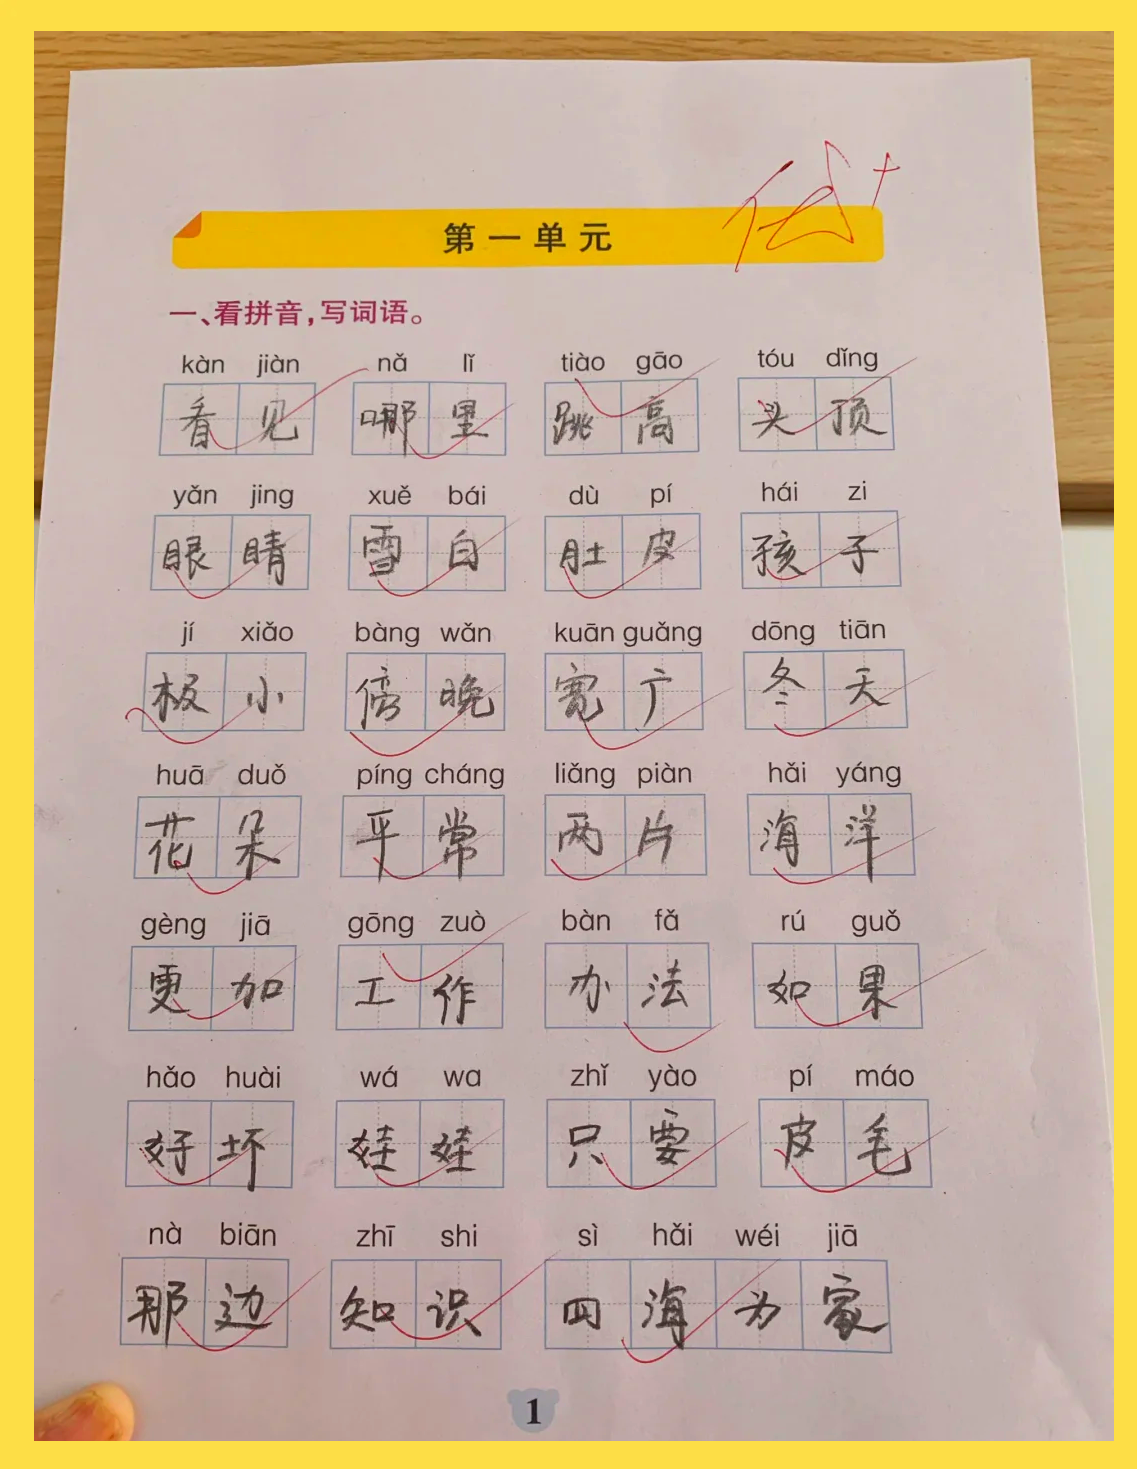 优+
第一单元
一、看拼音,写词语。
kàn jiàn nǎ lǐ tiào gāo tóu dǐng
看见 哪里 跳高 头顶
yǎn jing xuě bái dù pí hái zi
眼睛 雪白 肚皮 孩子
jí xiǎo bàng wǎn kuān guǎng dōng tiān
极小 傍晚 宽广 冬天
huā duǒ píng cháng liǎng piàn hǎi yáng
花朵 平常 两片 海洋
gèng jiā gōng zuò bàn fǎ rú guǒ
更加 工作 办法 如果
hǎo huài wá wa zhǐ yào pí máo
好坏 娃娃 只要 皮毛
nà biān zhī shi sì hǎi wéi jiā
那边 知识 四海为家
1